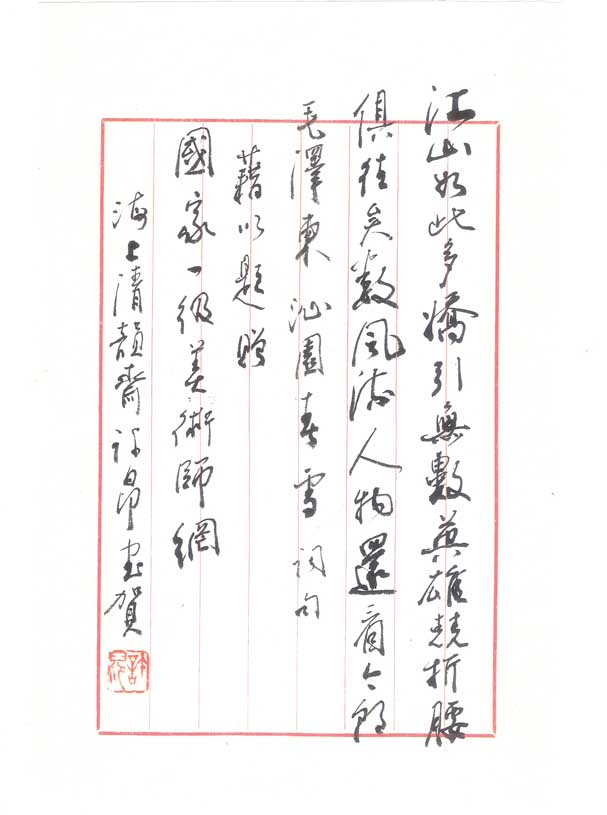 江山如此多嬌引無數英雄競折腰
俱往矣數風流人物還看今朝
毛澤東 沁園春雪 詞句
藉以題贈
國家一級美術師網
海上清韻齋許昂書賀